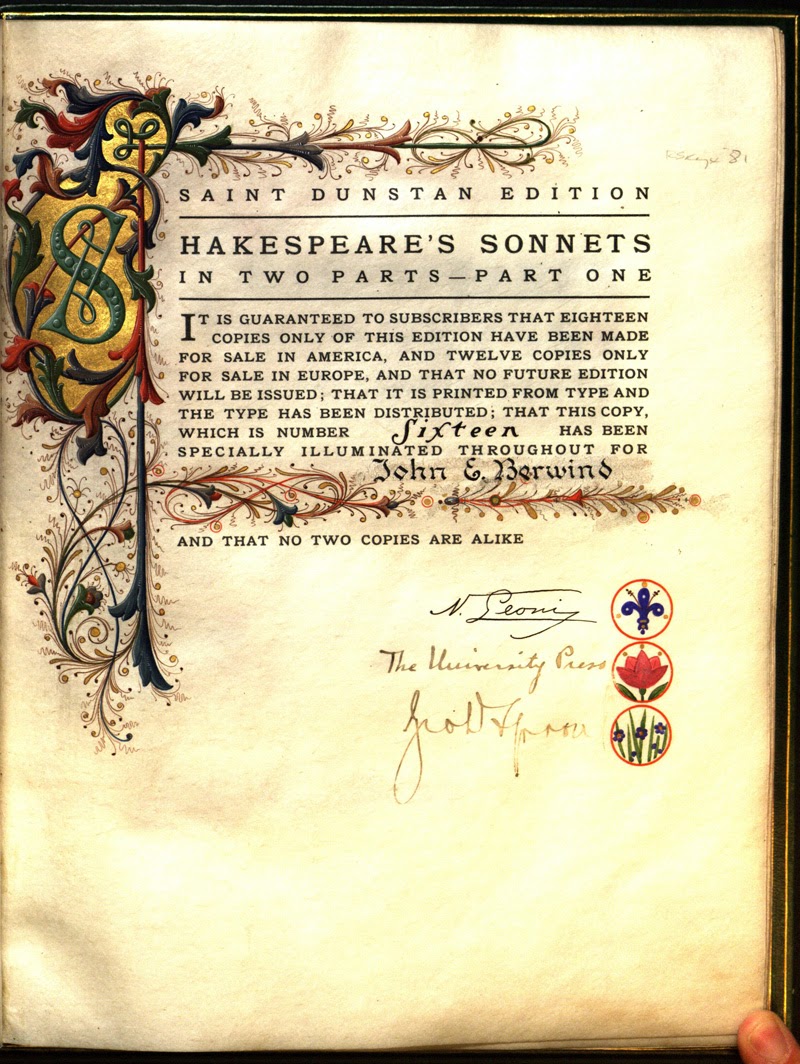 SAINT DUNSTAN EDITION
SHAKESPEARE'S SONNETS
IN TWO PARTS—PART ONE
IT IS GUARANTEED TO SUBSCRIBERS THAT EIGHTEEN
COPIES ONLY OF THIS EDITION HAVE BEEN MADE
FOR SALE IN AMERICA, AND TWELVE COPIES ONLY
FOR SALE IN EUROPE, AND THAT NO FUTURE EDITION
WILL BE ISSUED; THAT IT IS PRINTED FROM TYPE AND
THE TYPE HAS BEEN DISTRIBUTED; THAT THIS COPY,
WHICH IS NUMBER Sixteen HAS BEEN
SPECIALLY ILLUMINATED THROUGHOUT FOR
John E. Berwind
AND THAT NO TWO COPIES ARE ALIKE
N. Leoni
The University Press